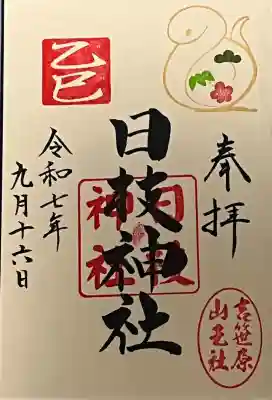 奉拝
吉笹原
山王社
日枝神社
日枝
神社
乙巳
令和七年
九月十六日